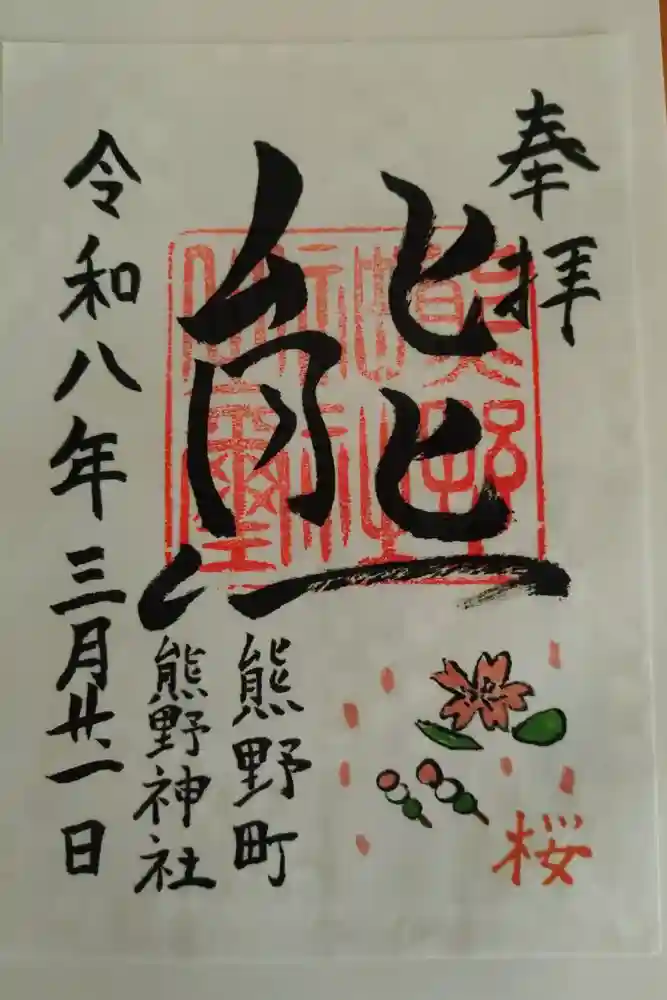 奉拝
熊
桜
熊野町
熊野神社
令和八年三月廿一日